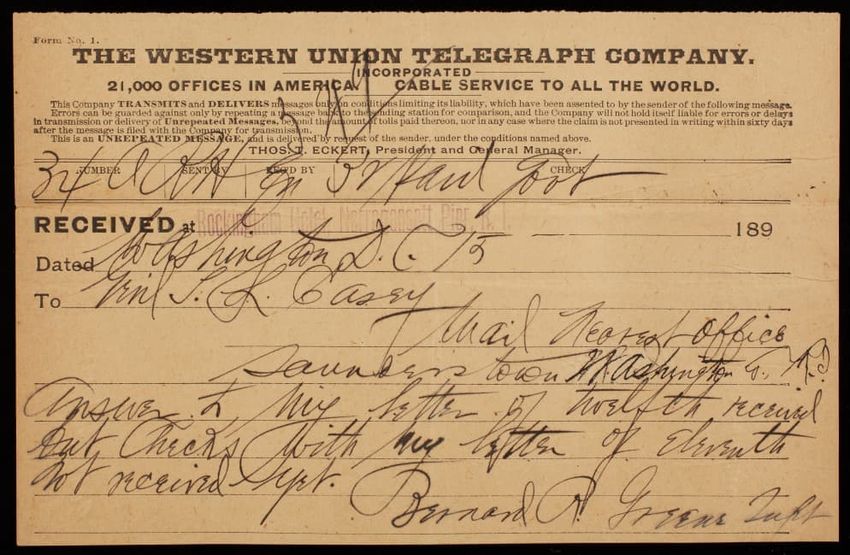 Form No. 1.
THE WESTERN UNION TELEGRAPH COMPANY.
INCORPORATED
21,000 OFFICES IN AMERICA. CABLE SERVICE TO ALL THE WORLD.
This Company TRANSMITS and DELIVERS messages only on conditions limiting its liability, which have been assented to by the sender of the following message.
Errors can be guarded against only by repeating a message back to the sending station for comparison, and the Company will not hold itself liable for errors or delays
in transmission or delivery of Unrepeated Messages, beyond the amount of tolls paid thereon, nor in any case where the claim is not presented in writing within sixty days
after the message is filed with the Company for transmission.
This is an UNREPEATED MESSAGE, and is delivered by request of the sender, under the conditions named above.
THOS. T. ECKERT, President and General Manager.
NUMBER SENT BY REC'D BY CHECK
34 Paid Govt
RECEIVED at Rockingham Hotel Narragansett Pier R. I. 189
Dated Washington D. C. 15
To Genl T. L. Casey
Mail Nearest office
Saunderstown Washington Co. R.I.
Answer to my letter of twelfth received
but checks with my letter of eleventh
not received yet.
Bernard R. Greene Supt